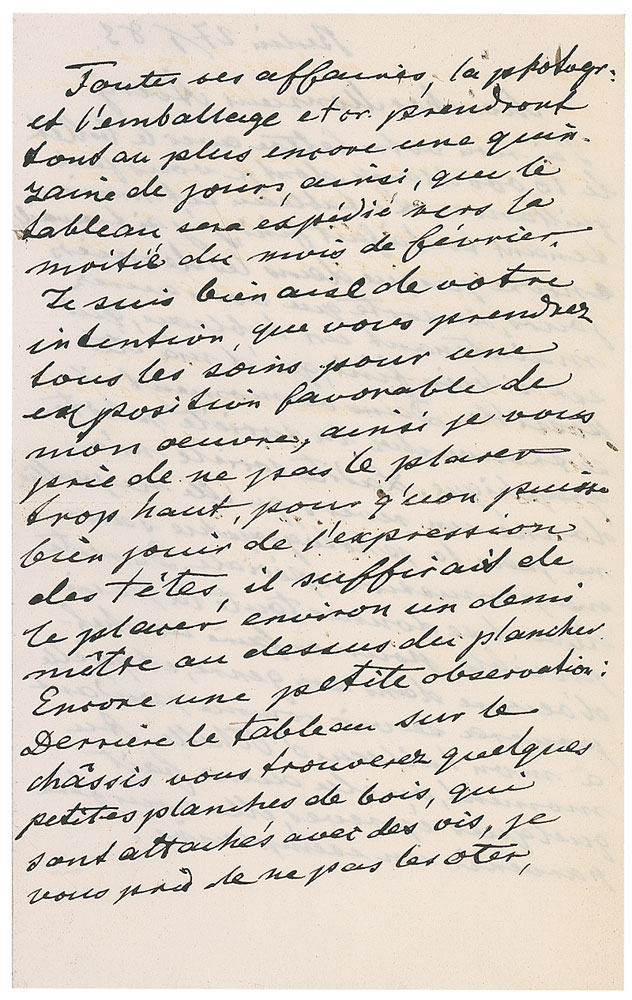 Toutes ces affaires, la photogr:
et l'emballage etc. prendront
tout au plus encore une quin-
zaine de jours, ainsi, que le
tableau sera expédié vers la
moitié du mois de février.
Je suis bien aise de votre
intention, que vous prendrez
tous les soins pour une
exposition favorable de
mon oeuvre, ainsi je vous
prie de ne pas le placer
trop haut, pour qu'on puisse
bien jouir de l'expression
des têtes, il suffirait de
le placer environ un demi
mêtre au dessus du plancher.
Encore une petite observation:
Derrière le tableau sur le
châssis vous trouverez quelques
petites planches de bois, qui
sont attachés avec des vis, je
vous prie de ne pas les ôter,